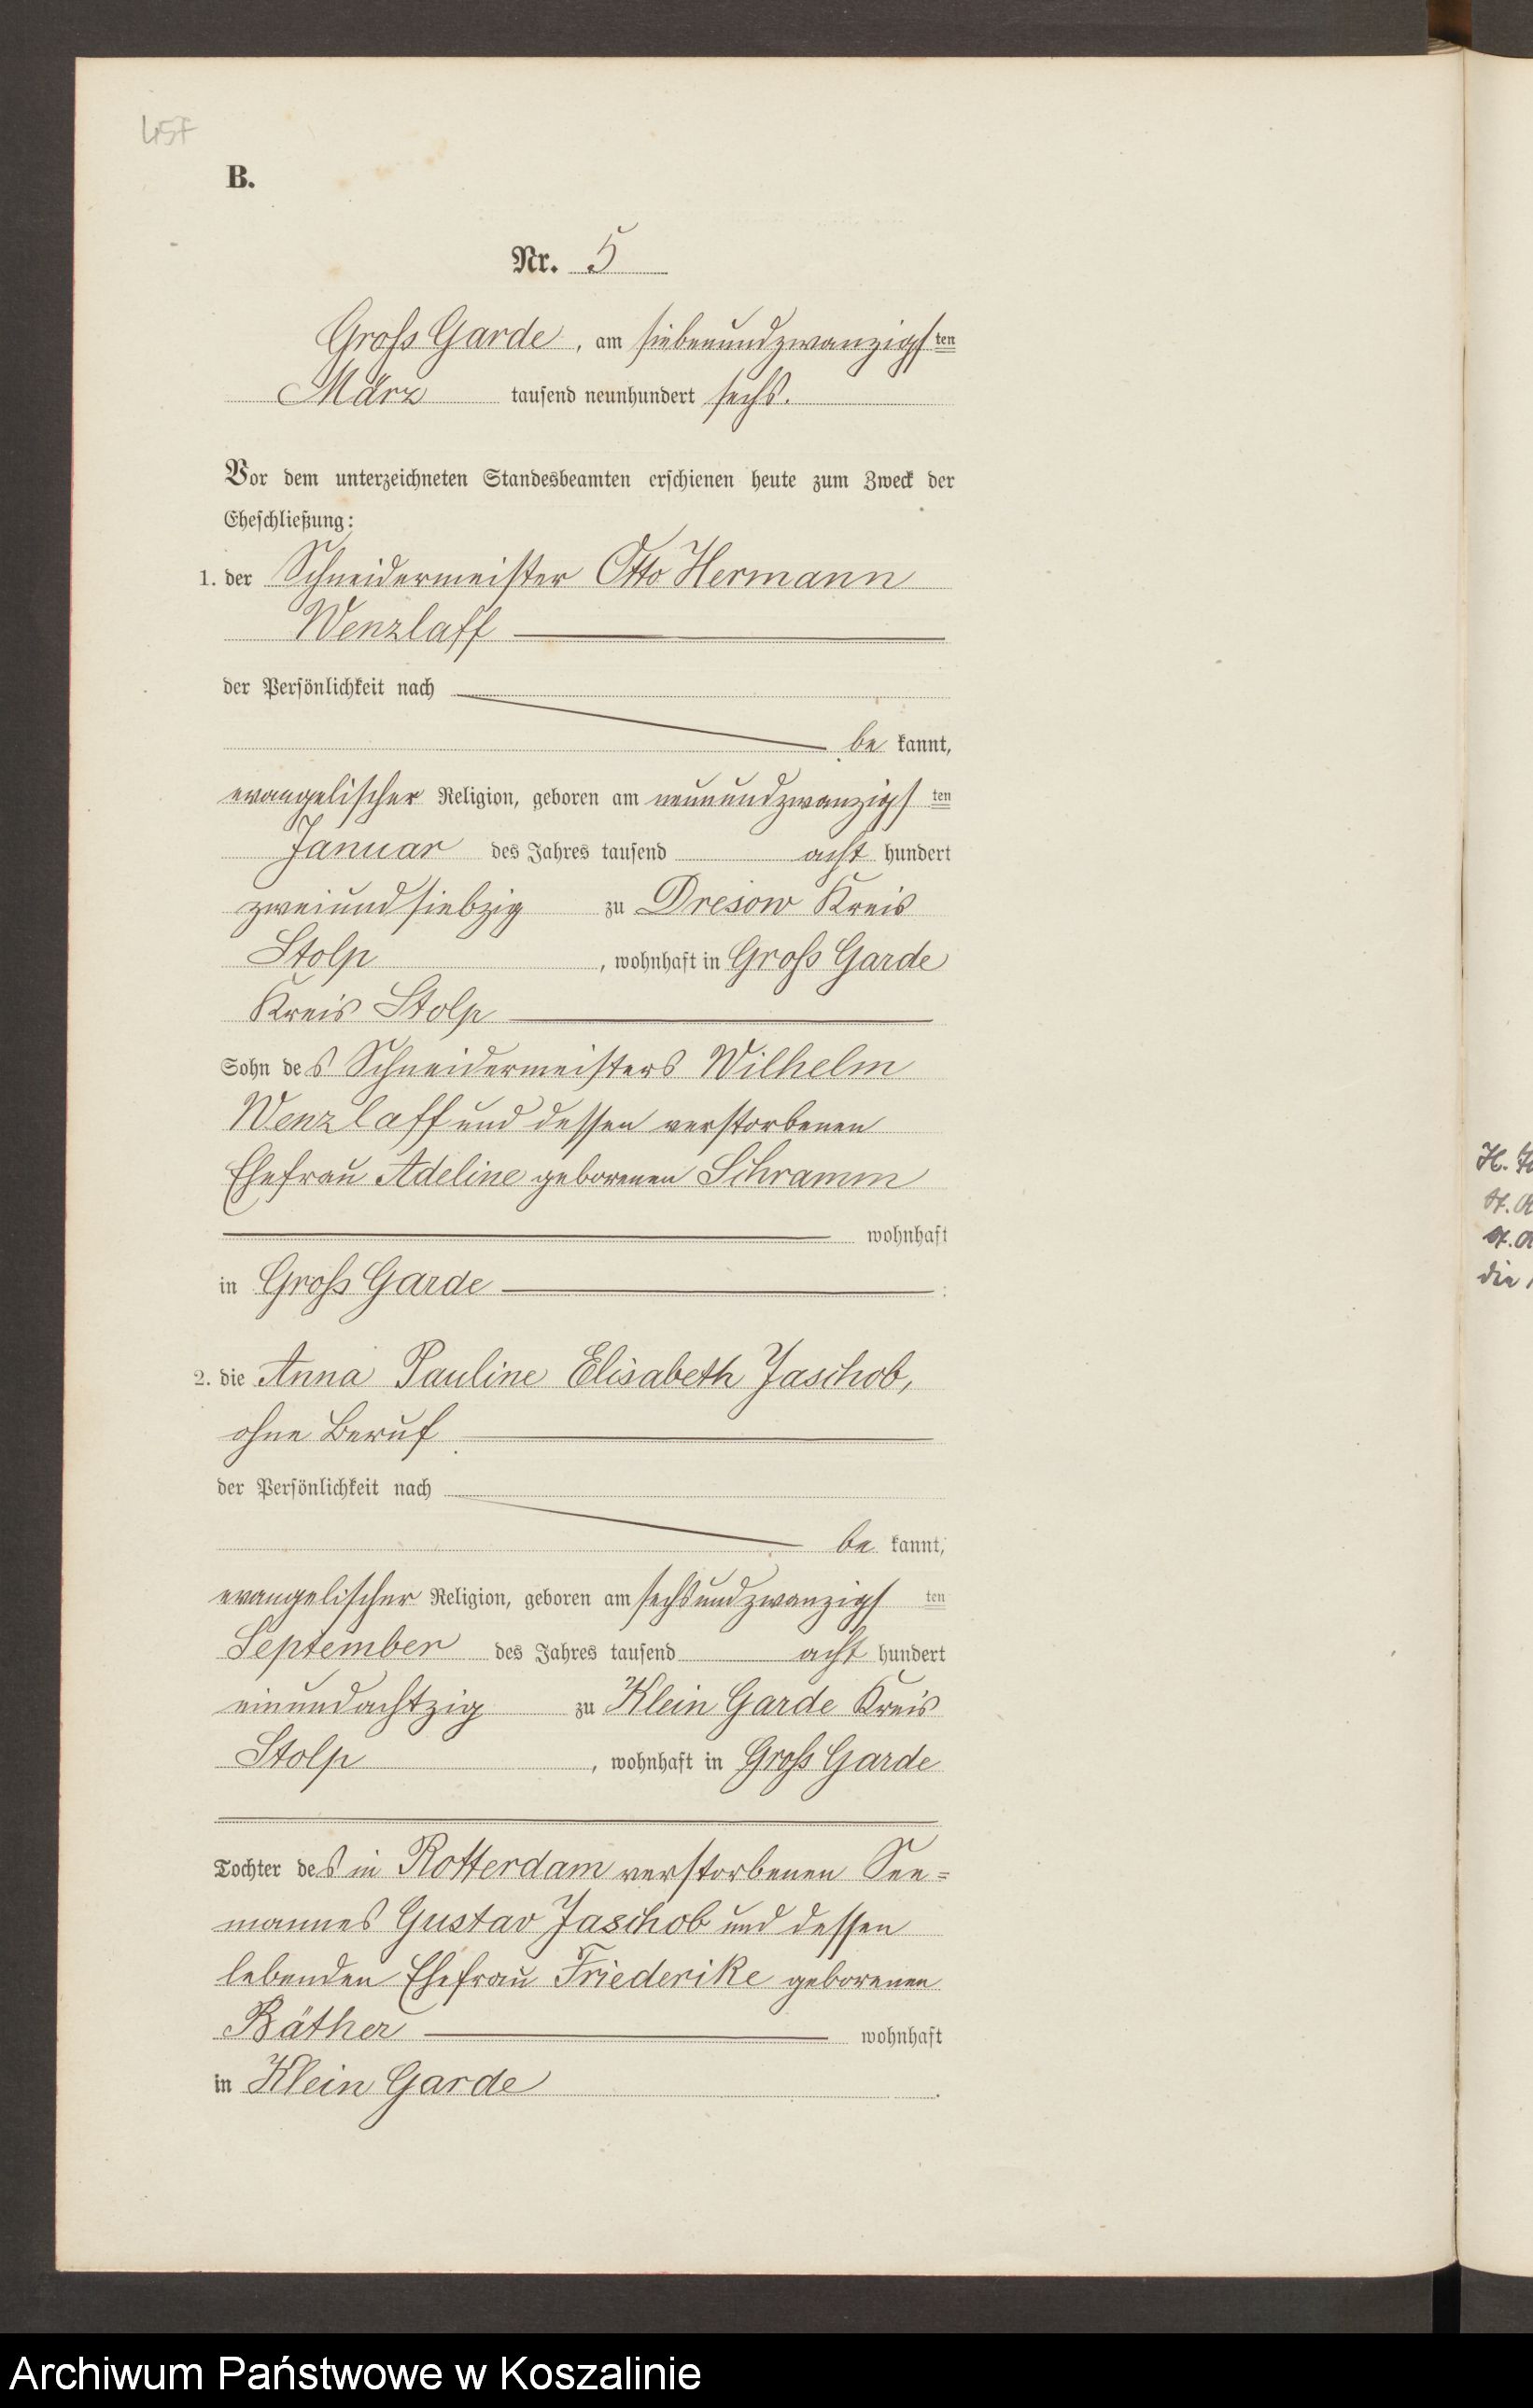 457
B.
Nr. 5
Gross Garde, am siebenundzwanzigsten
März tausend neunhundert sechs.
Vor dem unterzeichneten Standesbeamten erschienen heute zum Zweck der
Eheschließung:
1. der Schneidermeister Otto Hermann
Wenzlaff
der Persönlichkeit nach
be kannt,
evangelischer Religion, geboren am neunundzwanzigsten
Januar des Jahres tausend acht hundert
zweiundsiebzig zu Dresow Kreis
Stolp, wohnhaft in Gross Garde
Kreis Stolp
Sohn des Schneidermeisters Wilhelm
Wenzlaff und dessen verstorbenen
Ehefrau Adeline geborenen Schramm
wohnhaft
in Gross Garde :
2. die Anna Pauline Elisabeth Jaschob,
ohne Beruf
der Persönlichkeit nach
be kannt,
evangelischer Religion, geboren am sechsundzwanzigsten
September des Jahres tausend acht hundert
einundachtzig zu Klein Garde Kreis
Stolp, wohnhaft in Gross Garde
Tochter des in Rotterdam verstorbenen See=
mannes Gustav Jaschob und dessen
lebenden Ehefrau Friederike geborenen
Räther wohnhaft
in Klein Garde.
die
Archiwum Państwowe w Koszalinie